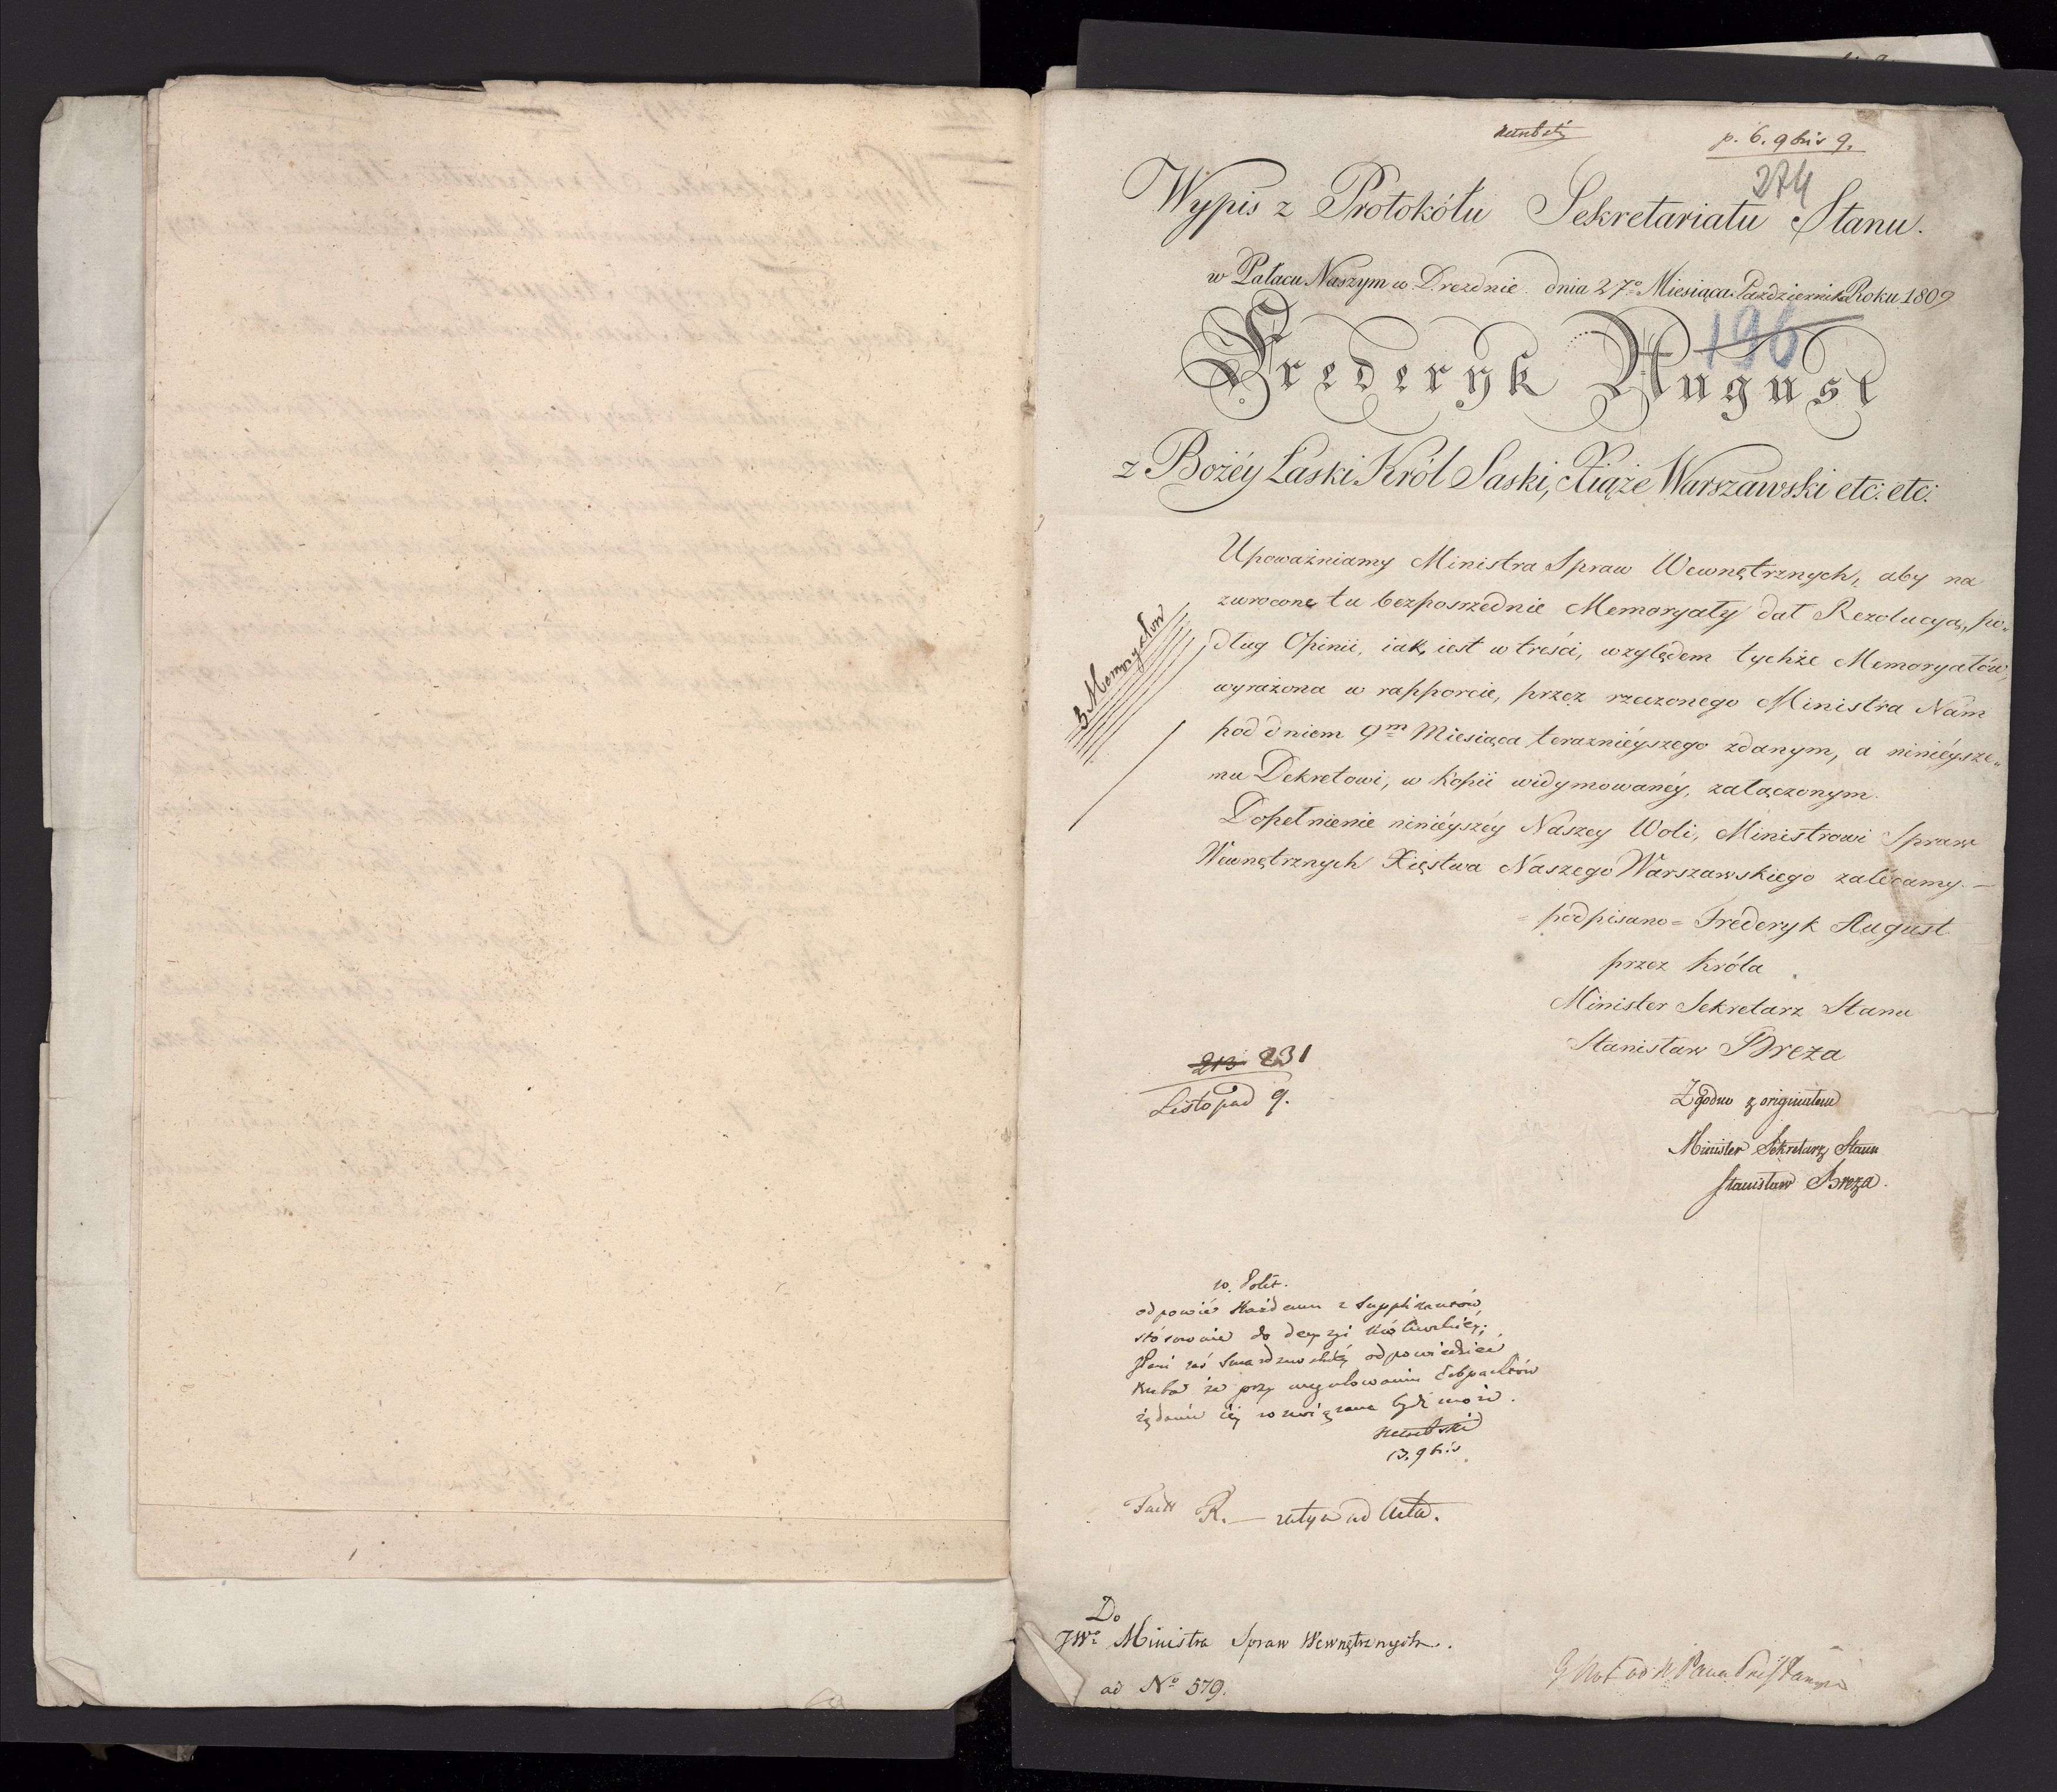 p. 6. 9bris 9.
274
Wypis z Protokółu Sekretariatu Stanu.
w Pałacu Naszym w Dreznie dnia 27º Miesiąca Pazdziernika Roku 1809
196
Frederyk August
z Bożéy Łaski Król Saski, Xiąże Warszawski etc: etc:
Upoważniamy Ministra Spraw Wewnętrznych, aby na
zwrocone tu bezposrzednie Memoryały dał Rezolucyą, po„
dług Opinii, iak, iest w treści, względem tychże Memoryałów,
wyrażona w rapporcie, przez rzeczonego Ministra Nam
pod dniem 9m Miesiąca teraznieyszego zdanym, a ninieysze„
mu Dekretowi, w kopii widymowanéy, załączonym.
Dopełnienie ninieyszéy Naszey Woli, Ministrowi Spraw
Wewnętrznych Xięstwa Naszego Warszawskiego zalecamy. —
= podpisano = Frederyk August
przez Króla
Minister Sekretarz Stanu
Stanisław Breza
Zgodno z originałem
Minister Sekretarz Stanu
Stanisław Breza.
5 Memoryałów
213 231
Listopad 9.
odpowié każdemu z Supplikantów,
stósownie do decyzyi Królewskiéy;
odpowiedzieć
że przy uregulowaniu
żądanie iéy rozwiązane bydź może.
13. 9bris
R. — ad Acta.
Do
JWº Ministra Spraw Wewnętrznych.
ad Nº 579.